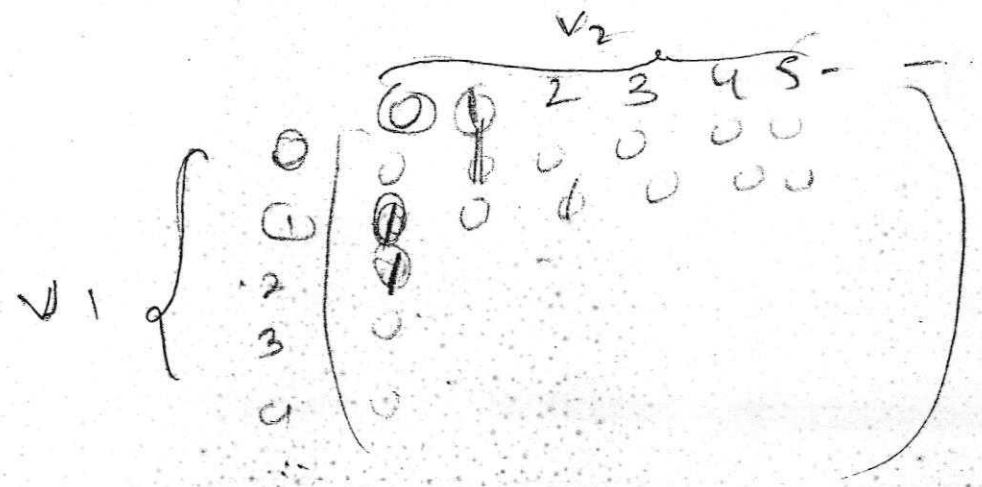 V2
0 1 2 3 4 5 - -
0 0 1 0 0 0 0
1 1 0 1 0 0 0
2 1
3 0
4 0
V1